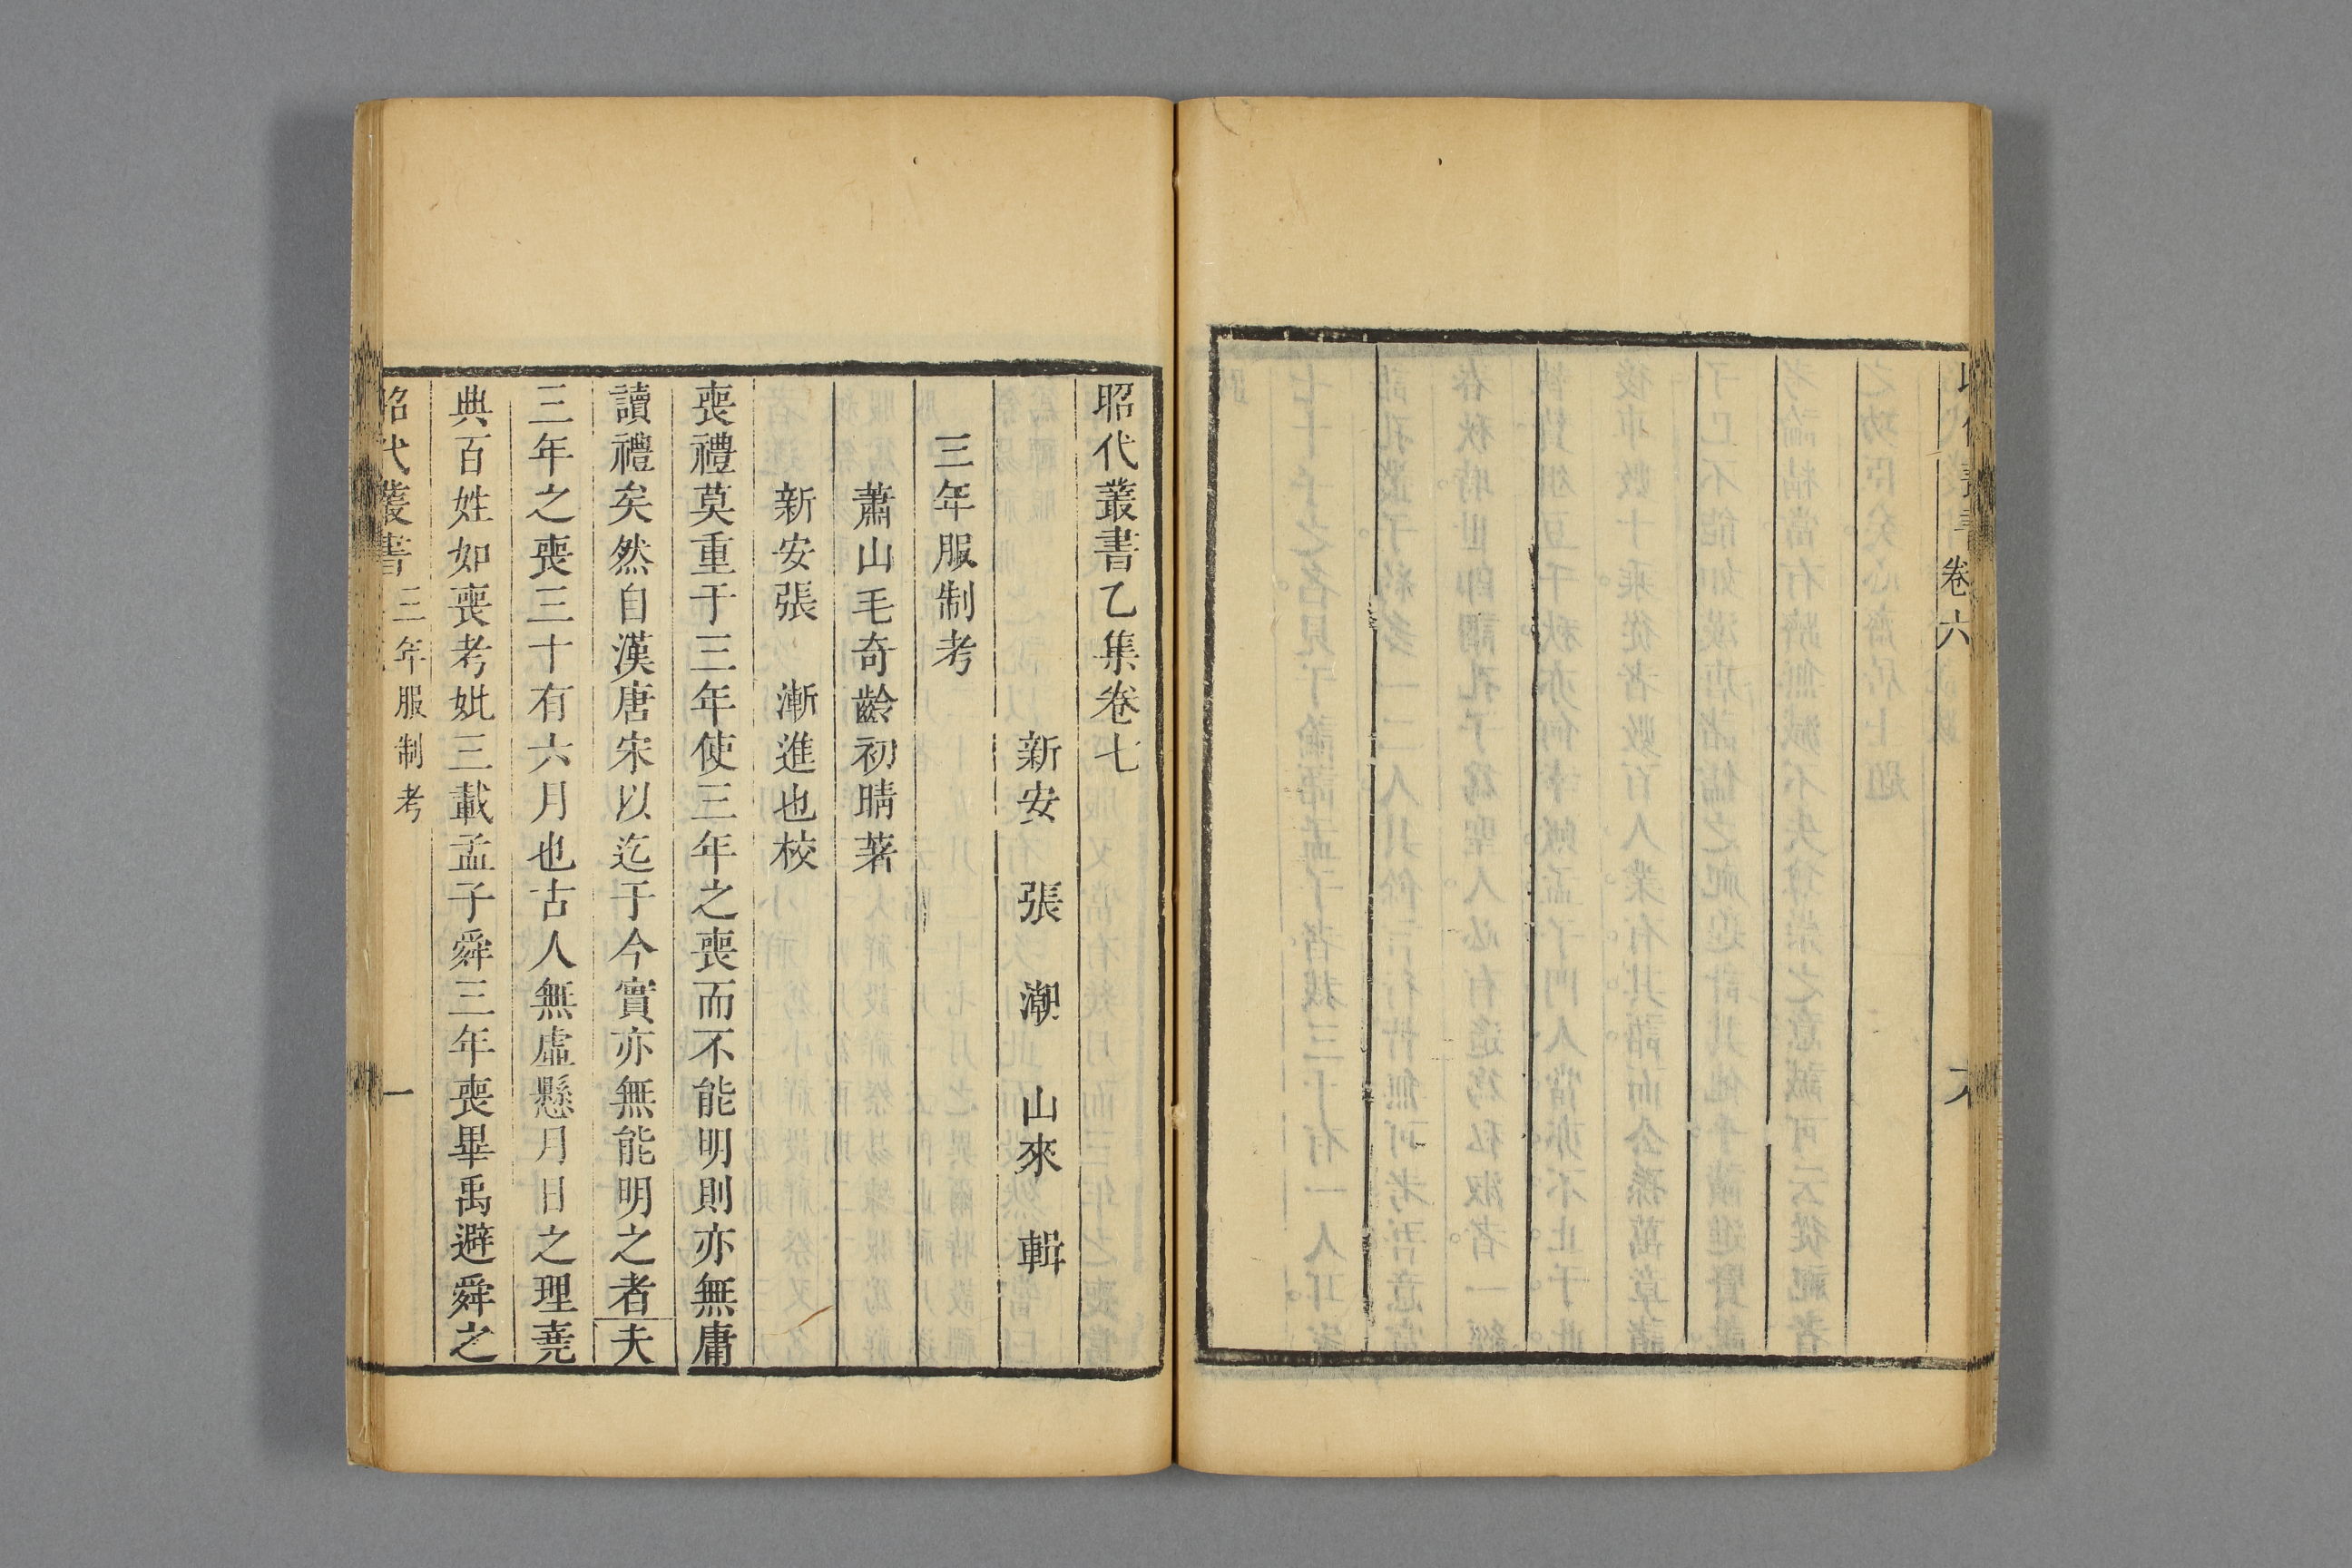 卷六
昭代叢書乙集卷七
新安 張 潮 山來 輯
三年服制考
蕭山毛奇齡初晴著
新安張 漸進也校
喪禮莫重于三年使三年之喪而不能明則亦無庸
讀禮矣然自漢唐宋以迄于今實亦無能明之者夫
三年之喪三十有六月也古人無虛懸月日之理堯
典百姓如喪考妣三載孟子舜三年喪畢禹避舜之
昭代叢書 三年服制考 一